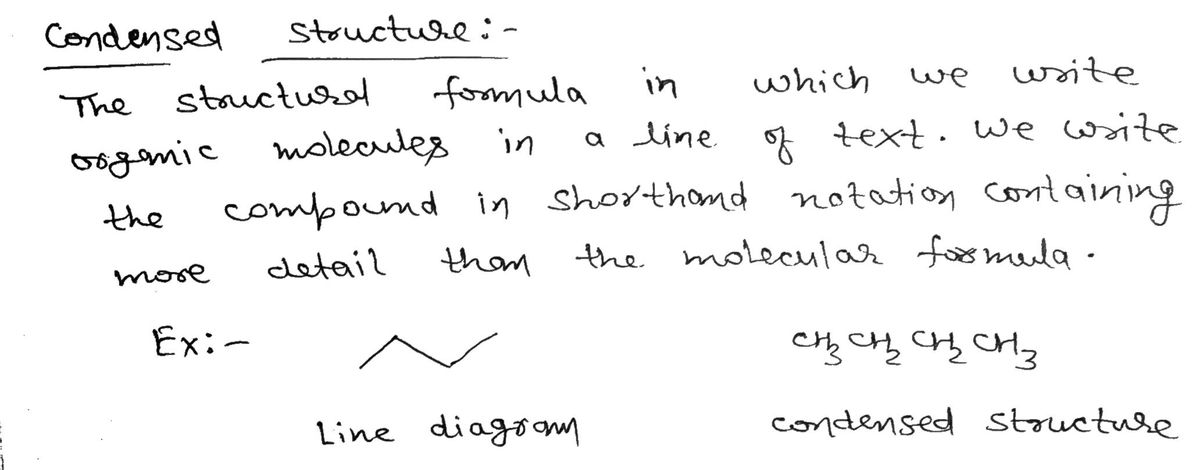 Condensed structure :-
The structural formula in which we write
organic molecules in a line of text. We write
the compound in shorthand notation containing
more detail than the molecular formula.
Ex:- CH₃ CH₂ CH₂ CH₃
Line diagram condensed structure